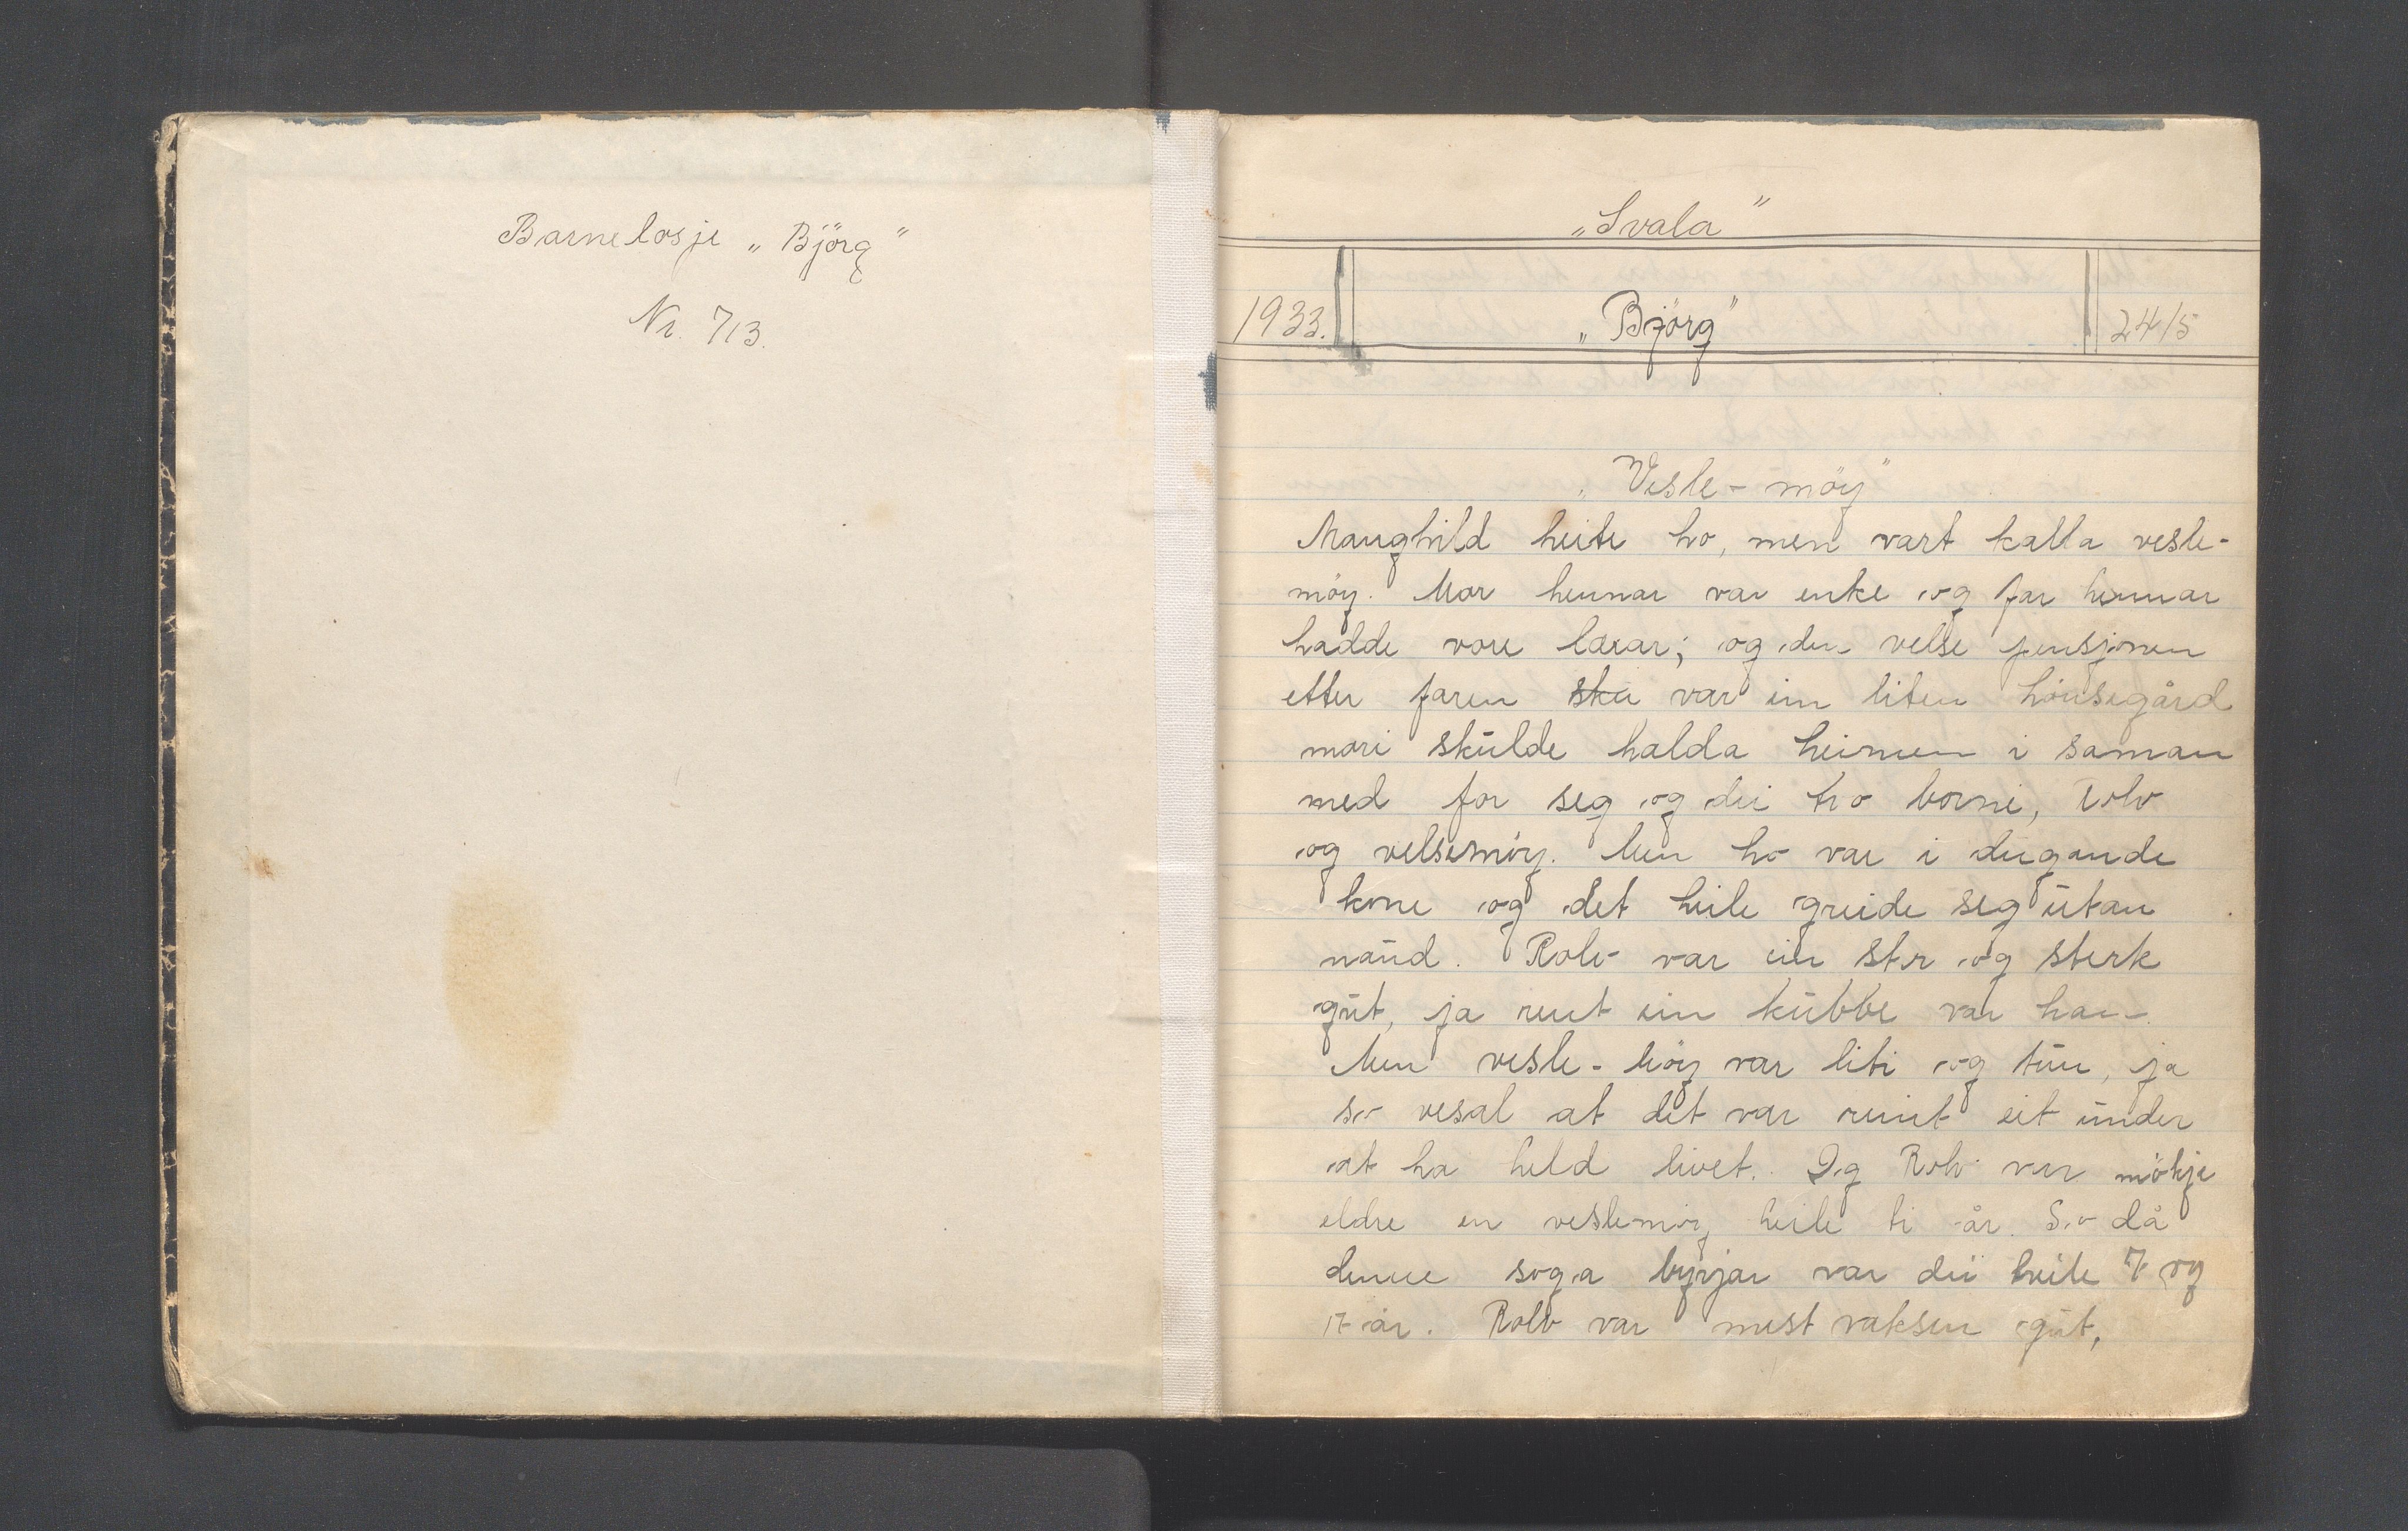 Barnelosje „Björg"
Nr. 713.
„Svala"
1933. „Björg" 24/5
„Vesle-möy"
Maughild heite ho, men vart kalla vesle-
möy. Mor hennar var enke og far hennar
hadde vore lærar; og den velse pensjonen
etter faren ska var ein liten hönsegård
mori skulde halda heimen i saman
med for seg og dei tvo borni, Rolv
og velsemöy. Men ho var i dugande
kone og det heile greide seg utan
naud. Rolv var ein stor og sterk
gut, ja reint ein kubbe var han.
Men vesle-möy var liti og tunn, ja
so vesal at det var reint eit under
at ho held livet. Og Rolv var mökje
eldre en veslemöy heile ti år. So då
denne soga byrjar var dei heile 7 og
17 år. Rolv var mest vaksen gut,